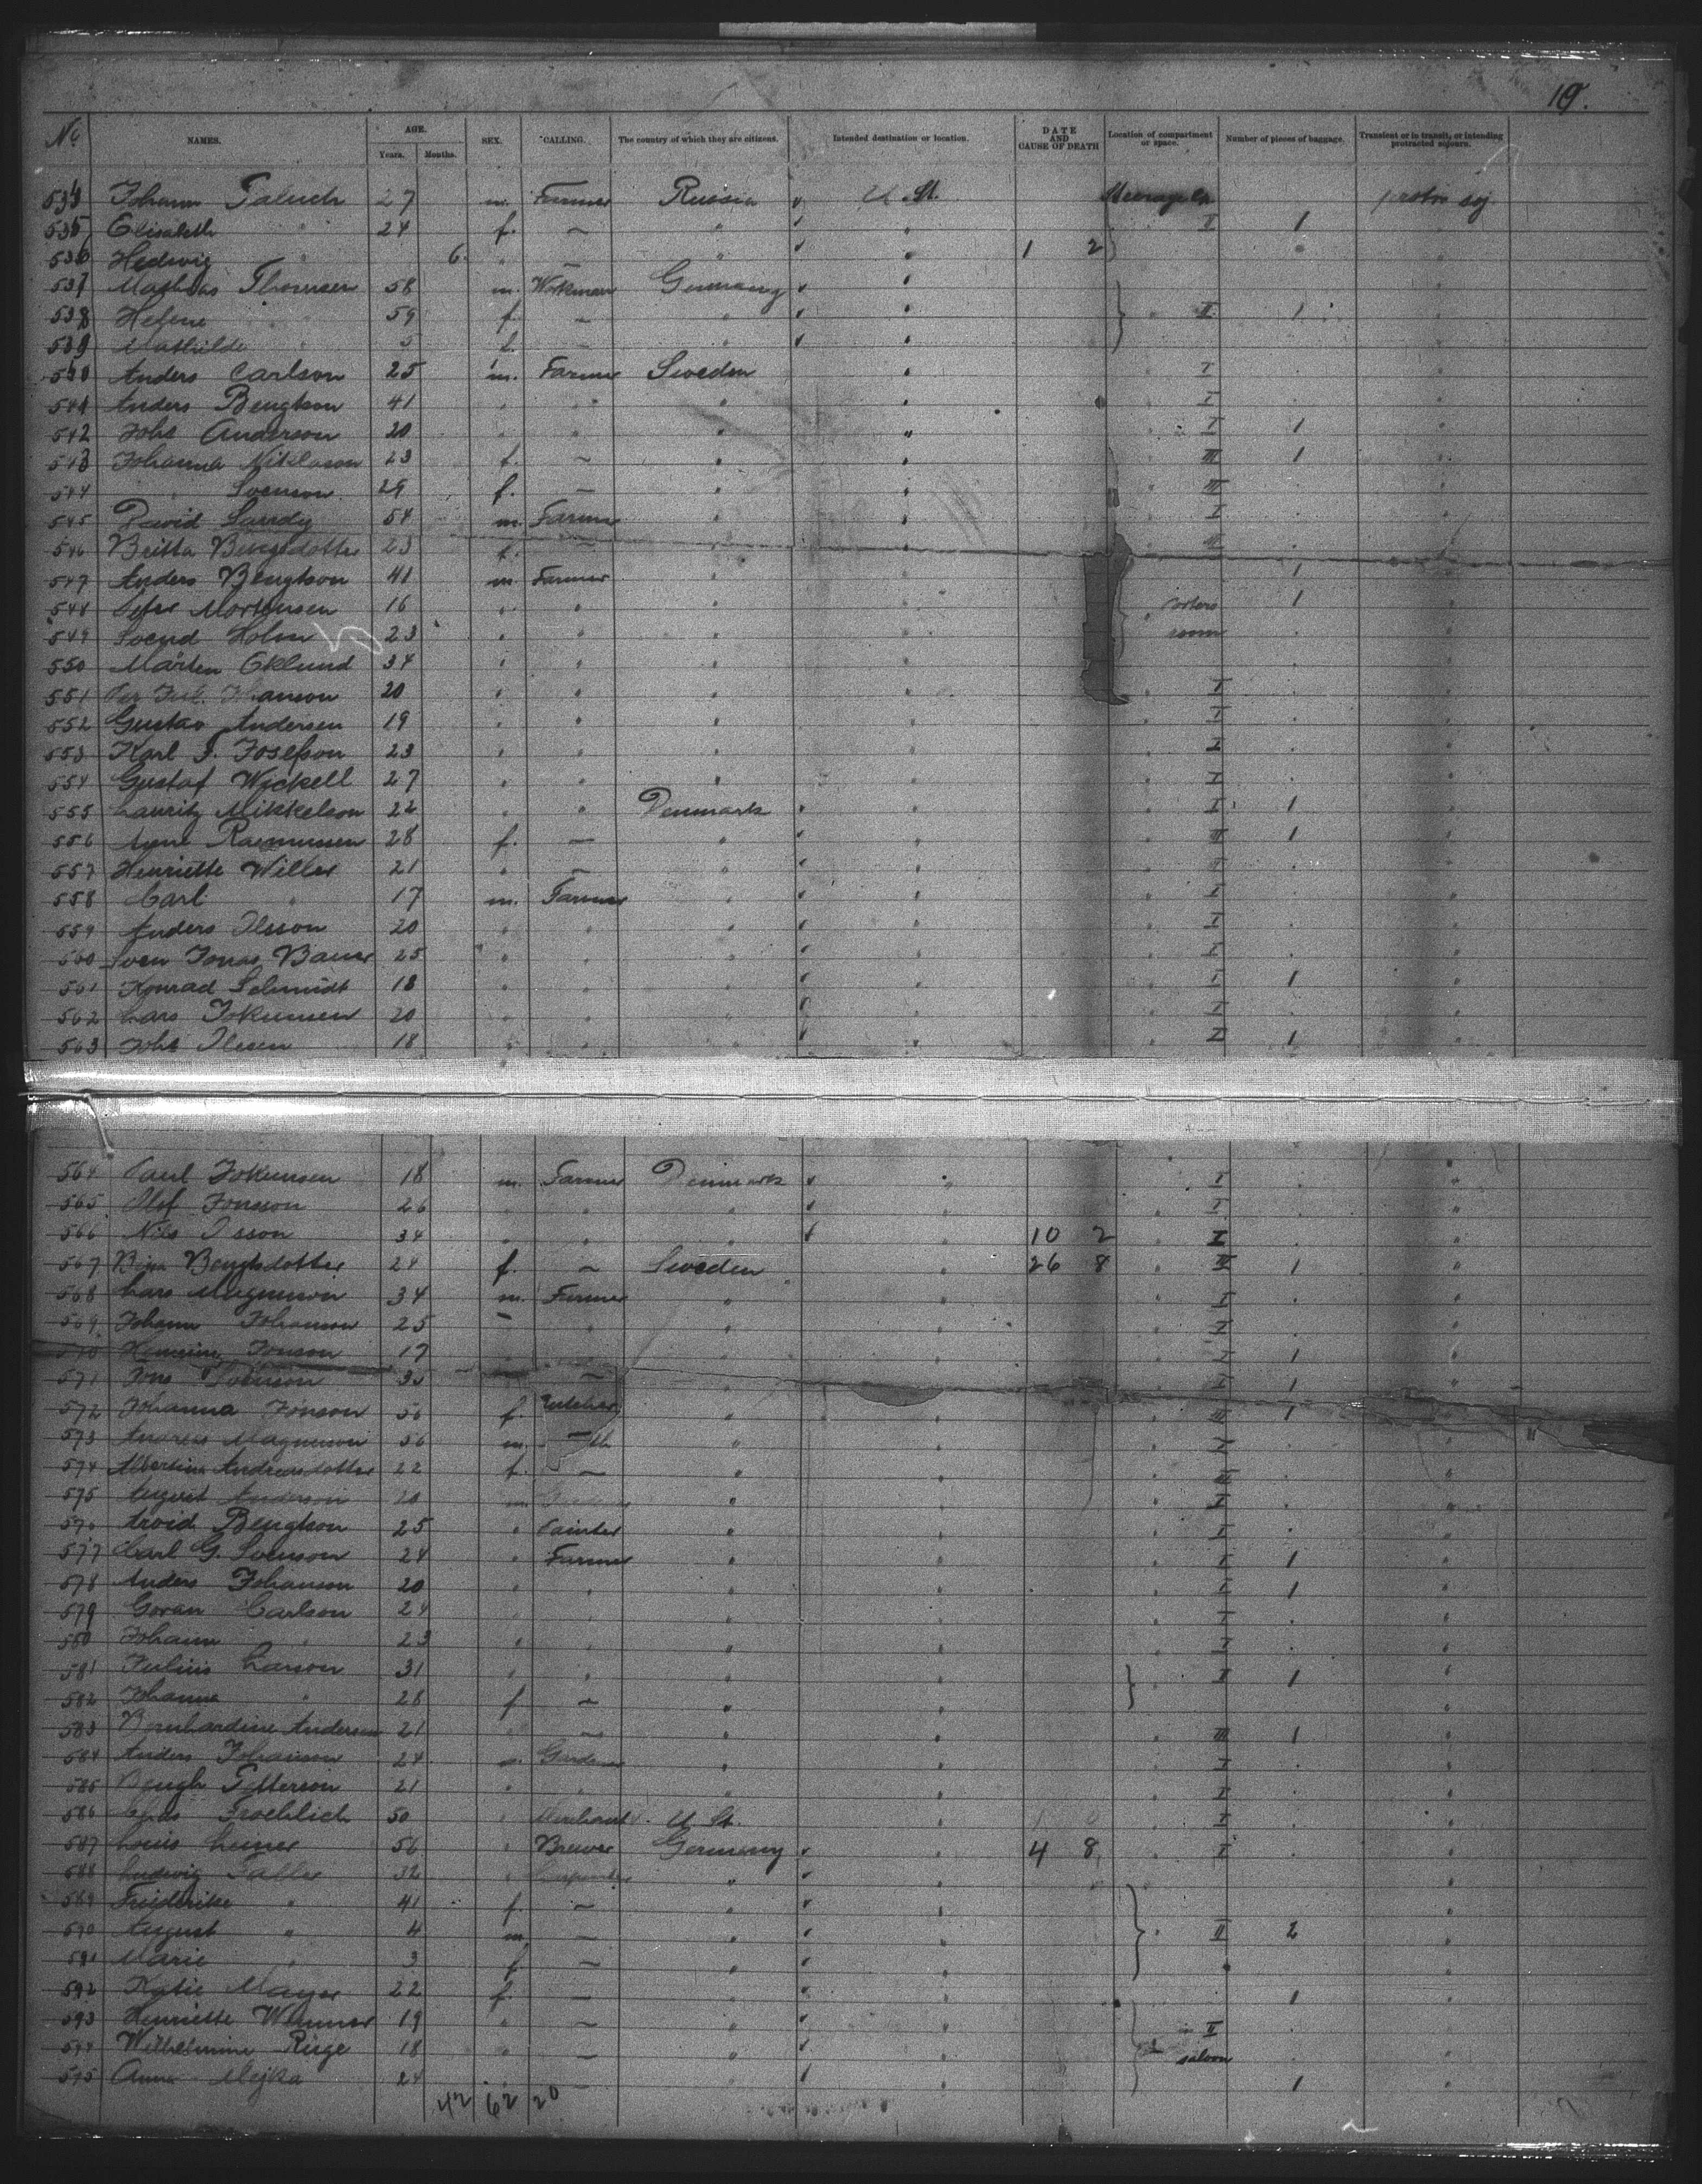 19.
No NAMES. AGE. Years. Months. SEX. CALLING. The country of which they are citizens. Intended destination or location. DATE AND CAUSE OF DEATH Location of compartment or space. Number of pieces of baggage. Transient or in transit, or intending protracted sojourn.
534 Johann Paluch 27 m. Farmer Russia U. St. Steerage protr. soj
535 Elisabeth " 24 f. — " " II 1 "
536 Hedwig " 6. " — " " 1 2 "
537 Mathias Thomsen 58 m. Workman Germany " "
538 Helene " 59 f. — " " " II 1 "
539 Mathilde " 3 f. — " " "
540 Anders Carlson 25 m. Farmer Sweden " " I "
541 Anders Bengtson 41 " " " " " I "
542 Johs Anderson 20 " " " " " I 1 "
543 Johanna Niklason 23 f. — " " " III 1 "
544 " Svenson 29 f. — " " " III "
545 David 54 m. Farmer " " " I "
546 Britta Bengsdotter 23 f. — " " " III "
547 Anders Bengtson 41 m Farmer " " 1 "
548 Mortensen 16 " " " " porters 1 "
549 Svend Holm 23 " " " " room "
550 Mårten Eklund 34 " " " " "
551 20 " " " " " I "
552 Gustav Andersen 19 " " " " " I "
553 Karl F. Josefson 23 " " " " " I "
554 Gustaf Wickell 27 " " " " " I "
555 Lauritz Mikkelson 22 " " Denmark " " I 1 "
556 Rasmussen 28 f. — " " " III 1 "
557 Henriette Willer 21 " — " " " "
558 Carl " 17 m. Farmer " " " I "
559 Anders Olsson 20 " " " " " I "
560 Sven Jonas Bauer 25 " " " " " I "
561 Konrad Schmidt 18 " " " " " I 1 "
562 Lars Jokumsen 20 " " " " " I "
563 Johs Olesen 18 " " " " " I 1 "
564 Paul Jokumsen 18 m. Farmer Denmark " " I "
565 Olof Jonsson 26 " " " " " I "
566 Nils 34 " " " " 10 2 " I "
567 Bengtsdotter 24 f. — Sweden " 26 8 " III 1 "
568 Lars Magnuson 34 m. Farmer " " " I "
569 Johann Johanson 25 — " " " " I "
570 Jonson 17 " " " I 1 "
571 Jons 35 — " " I 1 "
572 Johanna Jonson 56 f. " " III 1 "
573 Andreas Magnuson 56 m. " " " I "
574 Albertina Andreasdotter 22 f. — " " " III "
575 August Anderson 20 m " " " I "
576 Arvid Bengtson 25 " Painter " " " I "
577 Carl G. Svenson 24 " Farmer " " " I 1 "
578 Anders Johanson 20 " " " " " I 1 "
579 Goran Carlson 24 " " " " " I "
580 Johann " 23 " " " " " I "
581 Julius Larson 31 " " " " " I 1 "
582 Johanna " 28 f — " " "
583 Bernhardine Anderson 21 " — " " " III 1 "
584 Anders Johanson 24 m. Gardener " " " I "
585 Bengt Petterson 21 " " " " " I "
586 Chas Froehlich 50 " Merchant U. St. " " I "
587 Louis 56 " Brewer Germany " 4 8 " I "
588 Ludwig Faller 32 " Carpenter " " "
589 Friederike " 41 f. — " " "
590 August " 4 m — " " " II 2 "
591 Marie " 3 f — " " "
592 Katie Mayer 22 f. — " " 1 "
593 Henriette 19 " — " " in II "
594 Wilhelmine Rüge 18 " — " " saloon "
595 Anna Mejka 24 " — " " 1 "
42 62 20